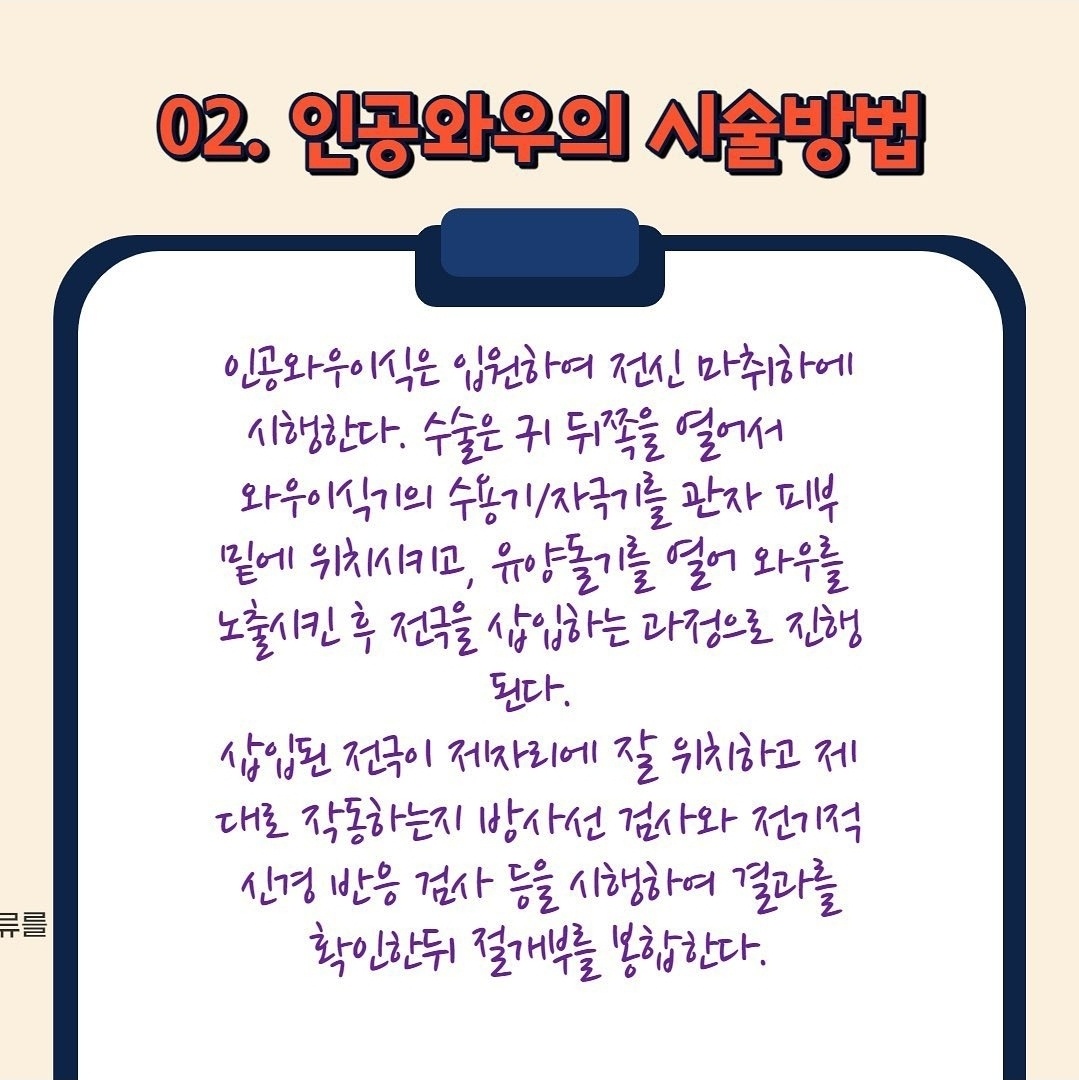 02. 인공와우의 시술방법
인공와우이식은 입원하여 전신 마취하에
시행한다. 수술은 귀 뒤쪽을 열어서
와우이식기의 수용기/자극기를 관자 피부
밑에 위치시키고, 유양돌기를 열어 와우를
노출시킨 후 전극을 삽입하는 과정으로 진행
된다.
삽입된 전극이 제자리에 잘 위치하고 제
대로 작동하는지 방사선 검사와 전기적
신경 반응 검사 등을 시행하여 결과를
확인한뒤 절개부를 봉합한다.